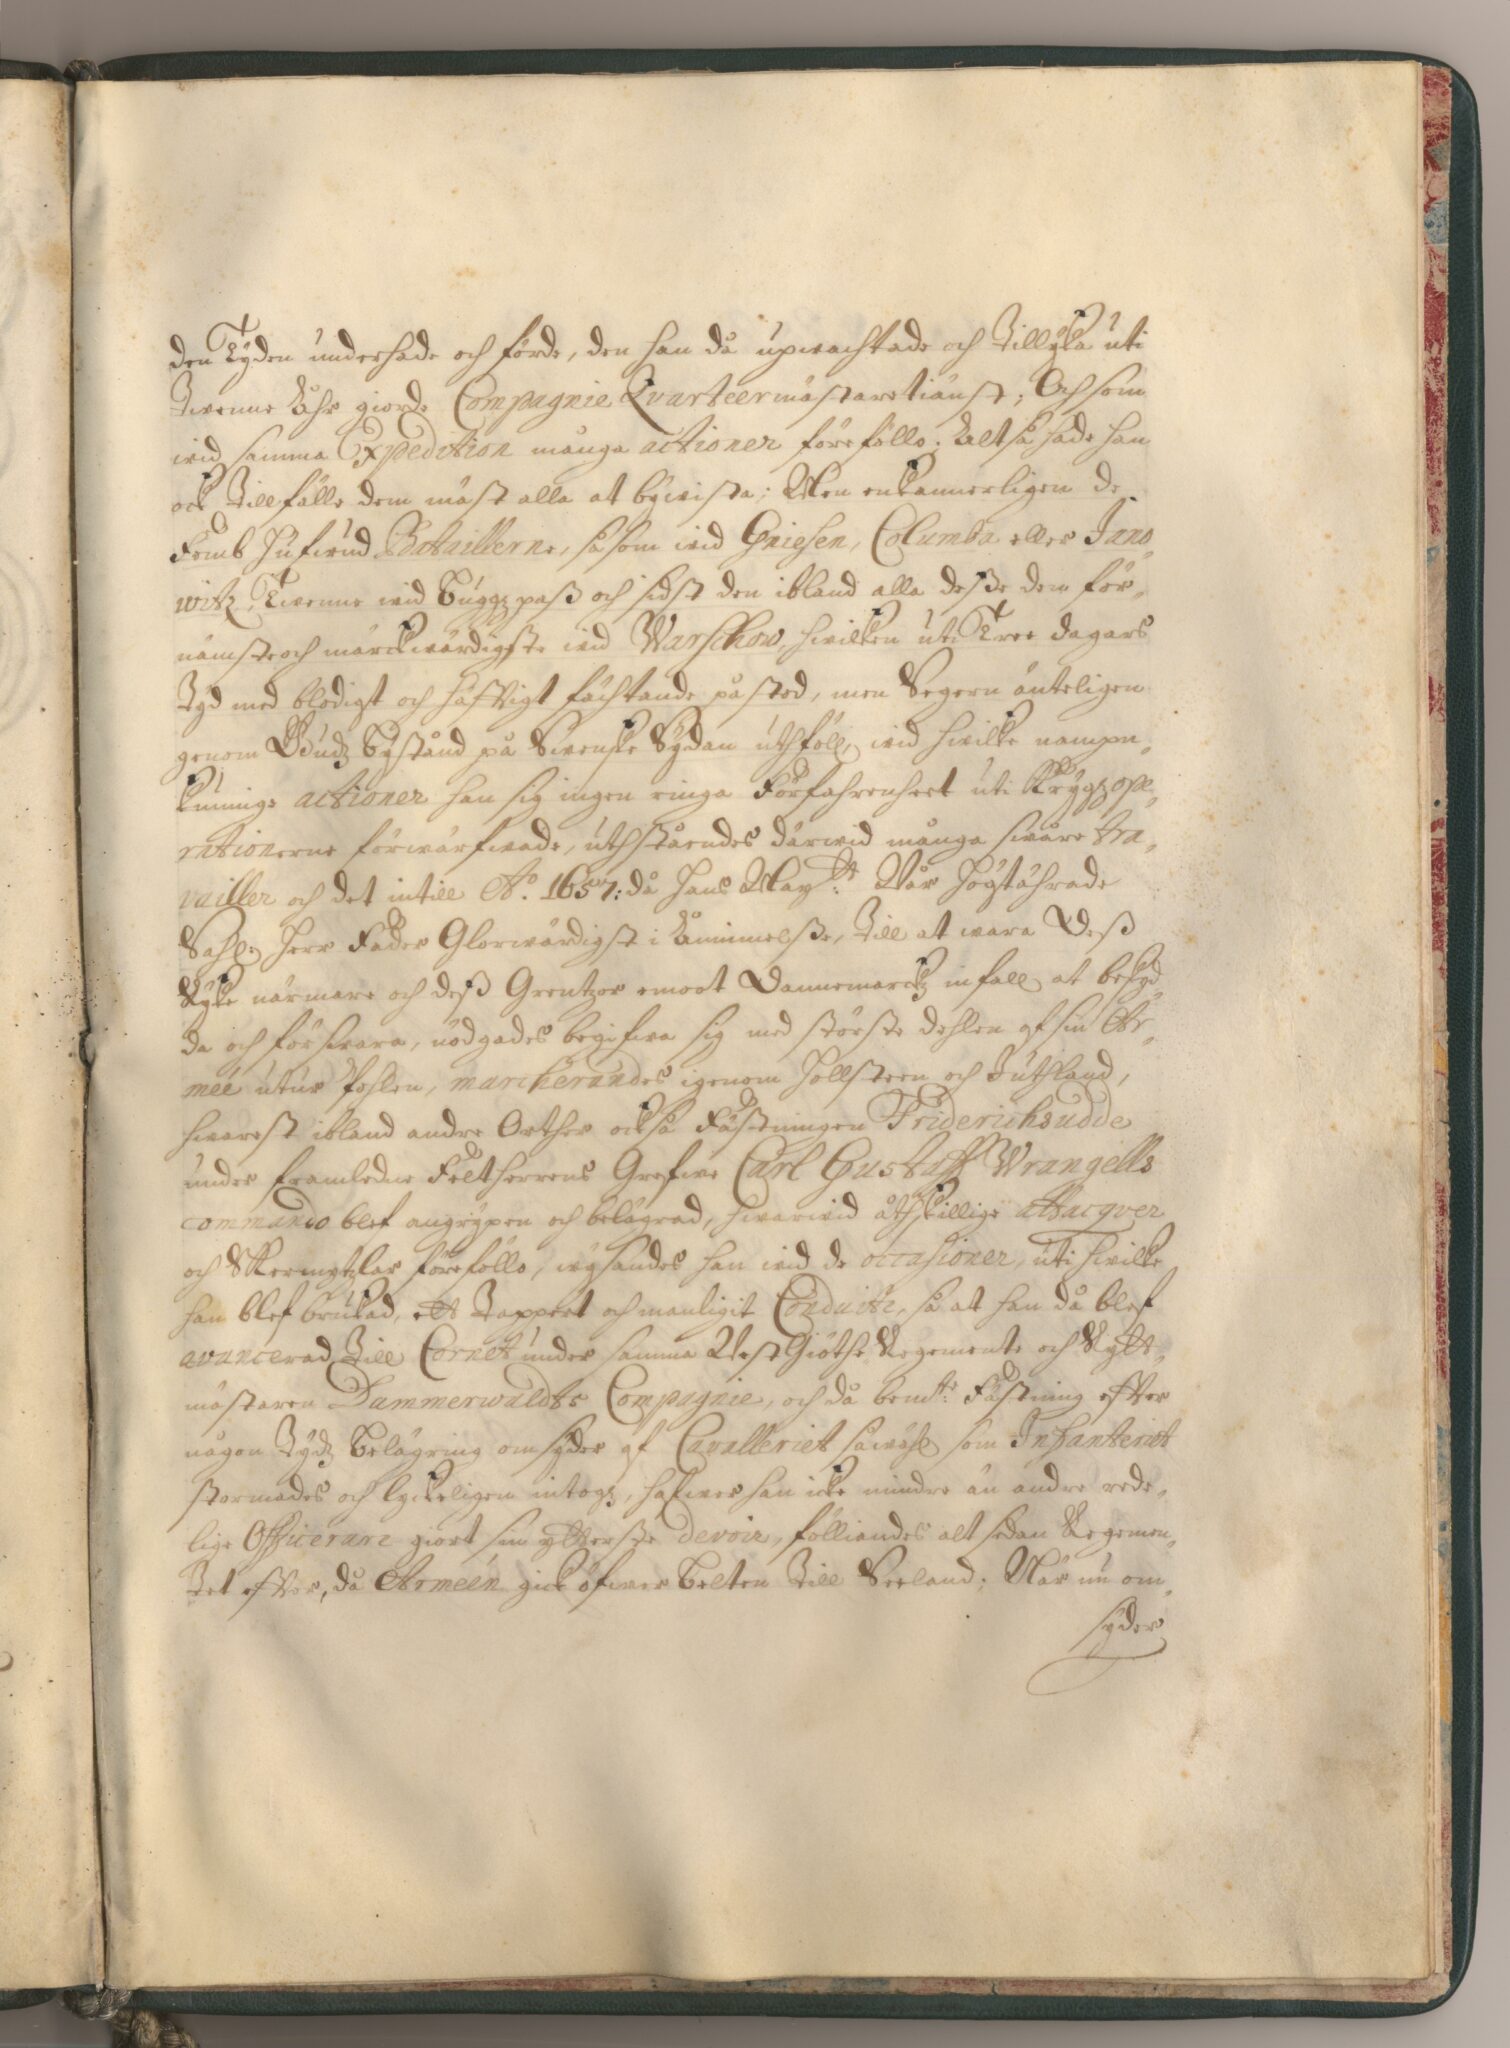 den Tijden underhade och förde, den han då upwachtade och Tillijka uti
Twenne Åhr giorde Compagnie Qvarteermästaretiänst; Och som
wid samma Expedition många actioner föreföllo; Altså hade han
ock Tillfälle dem mäst alla at bijwista; Men enkannerligen de
Femb Hufwud Bataillerne, så som wid Gniesen, Columba eller Jano„
witz, Twenne wid Buggz paß och sidst den ibland alla deße dem för„
nämste och märckwärdigste wid Warschow, hwilken uti Tree dagars
Tijd med blodigt och häfftigt fächtande påstod, men Segern änteligen
genom Gudz Bijstånd på Swenske Sijdan uthföll, wid hwilke nampn„
kunnige actioner han sig ingen ringa Förfahrenheet uti Krijgz ope„
rationerne förwärfwade, uthståendes därwid många swåre tra„
vailler och det intill A:o 1657: då Hans May:tt Wår Högtährade
Sahl. Herr Fader Glorwärdigst i Åminnelße, Till at wara Deß
Rijke närmare och deß Grentzor emoot Dannemarckz infall at beskyd„
da och förswara, nödgades begifwa sig med störste dehlen af sin Ar„
meé utur Pohlen, marcherandes igenom Hollsteen och Juthland,
hwarest ibland andre Orther också Fästningen Friderichsudde
under framledne Feltherrens Grefwe Carl Gustaff Wrangells
commando blef angrijpen och belägrad, hwarwid åthskillige attacqver
och Skermytzlar föreföllo, wijsandes han wid de occasioner, uti hwilke
han blef brukad, ett Tappert och manligit Conduite, så at han då blef
avancerad Till Cornet under samma West Giöthe Regemente och Rytt„
mästaren Dammerwaldts Compagnie, och då bem:te Fästning efter
någon Tijdz belägring omsijder af Cavalleriet såwähl som Infanteriet
stormades och lyckeligen intogz, hafwer han icke mindre än andre rede„
lige Officerare giort sin ytterste devoir, följiandes alt sedan Regemen„
tet effter, då Armeén gick öfwer Belten Till Seeland; När nu om„
sijder